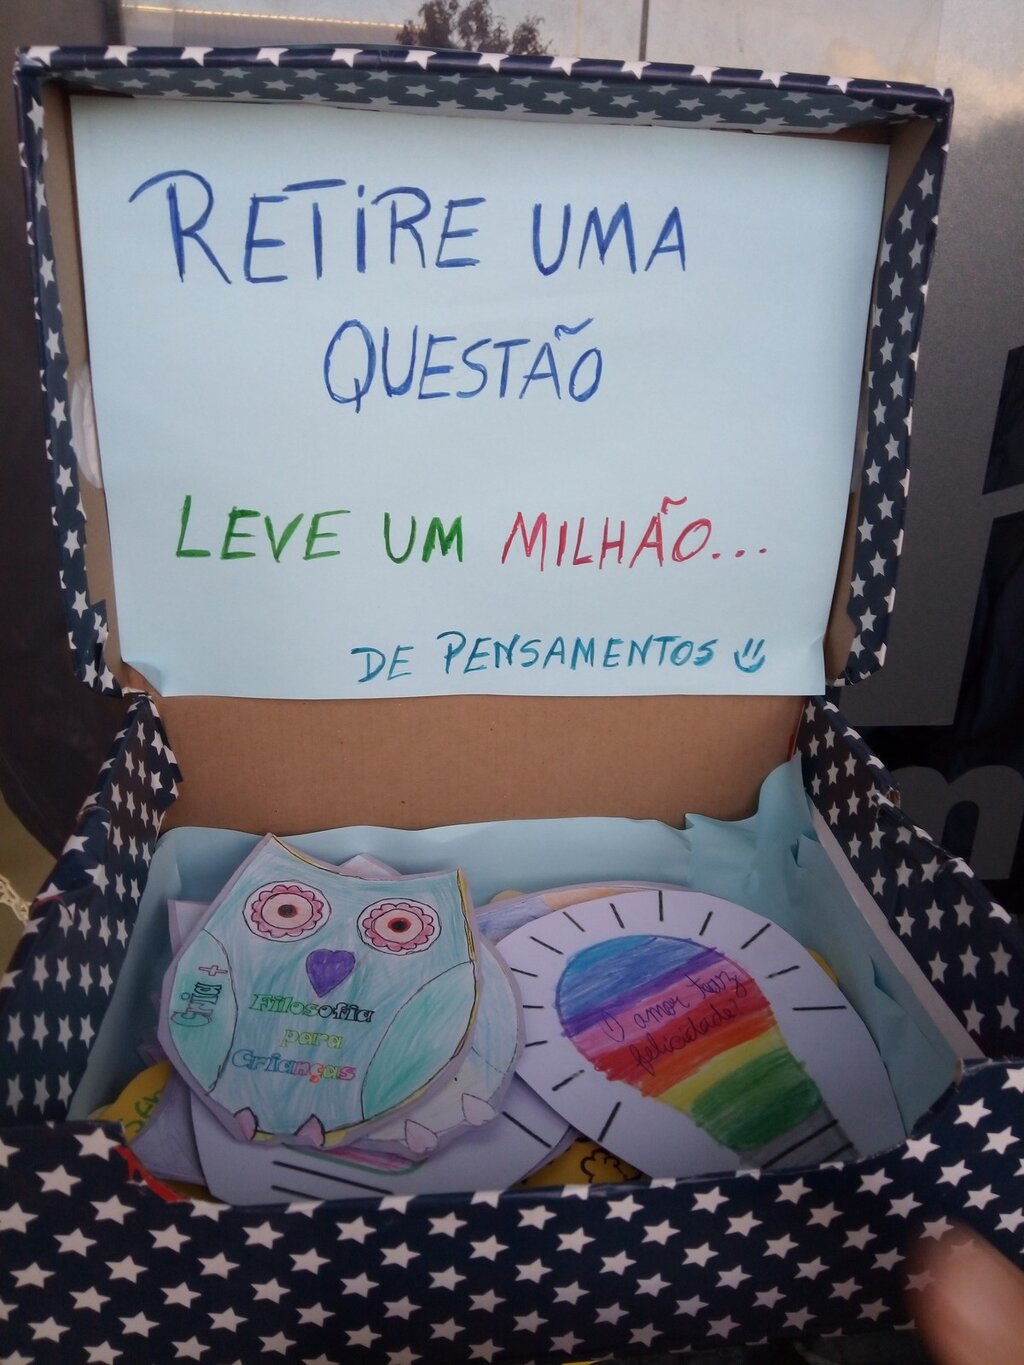 RETIRE UMA
QUESTÃO
LEVE UM MILHÃO...
DE PENSAMENTOS
Cria +
Filosofia
para
Crianças
O amor traz
felicidade!
m